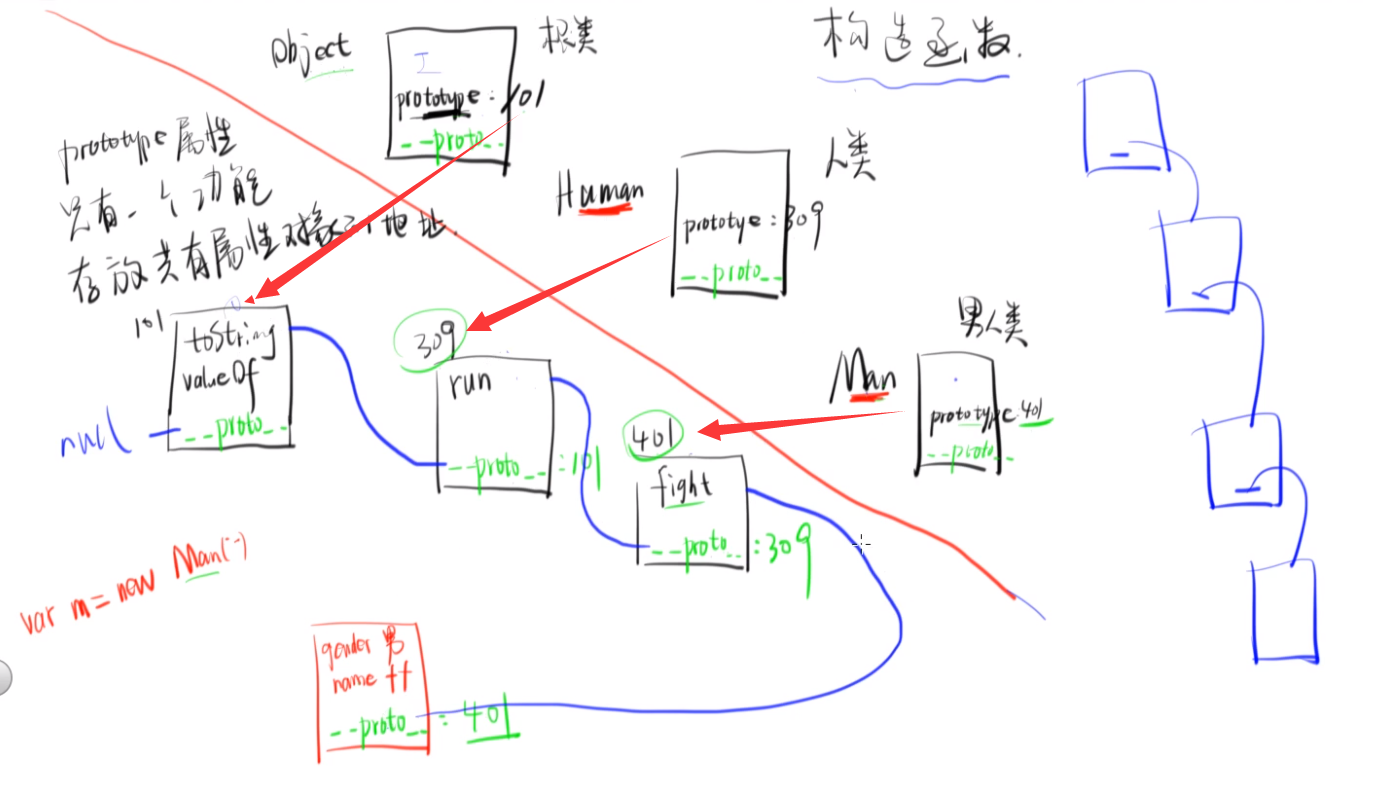 构造函数.
Object
根类
prototype : 101
--proto--
prototype 属性
只有一个功能
存放共有属性对象的地址.
Human
人类
prototye : 309
--proto--
男人类
Man
prototype 401
--proto--
101
toString
valueOf
--proto--
null
309
run
--proto-- : 101
401
fight
--proto-- : 309
var m = new Man(--)
gender 男
name ff
--proto-- : 401